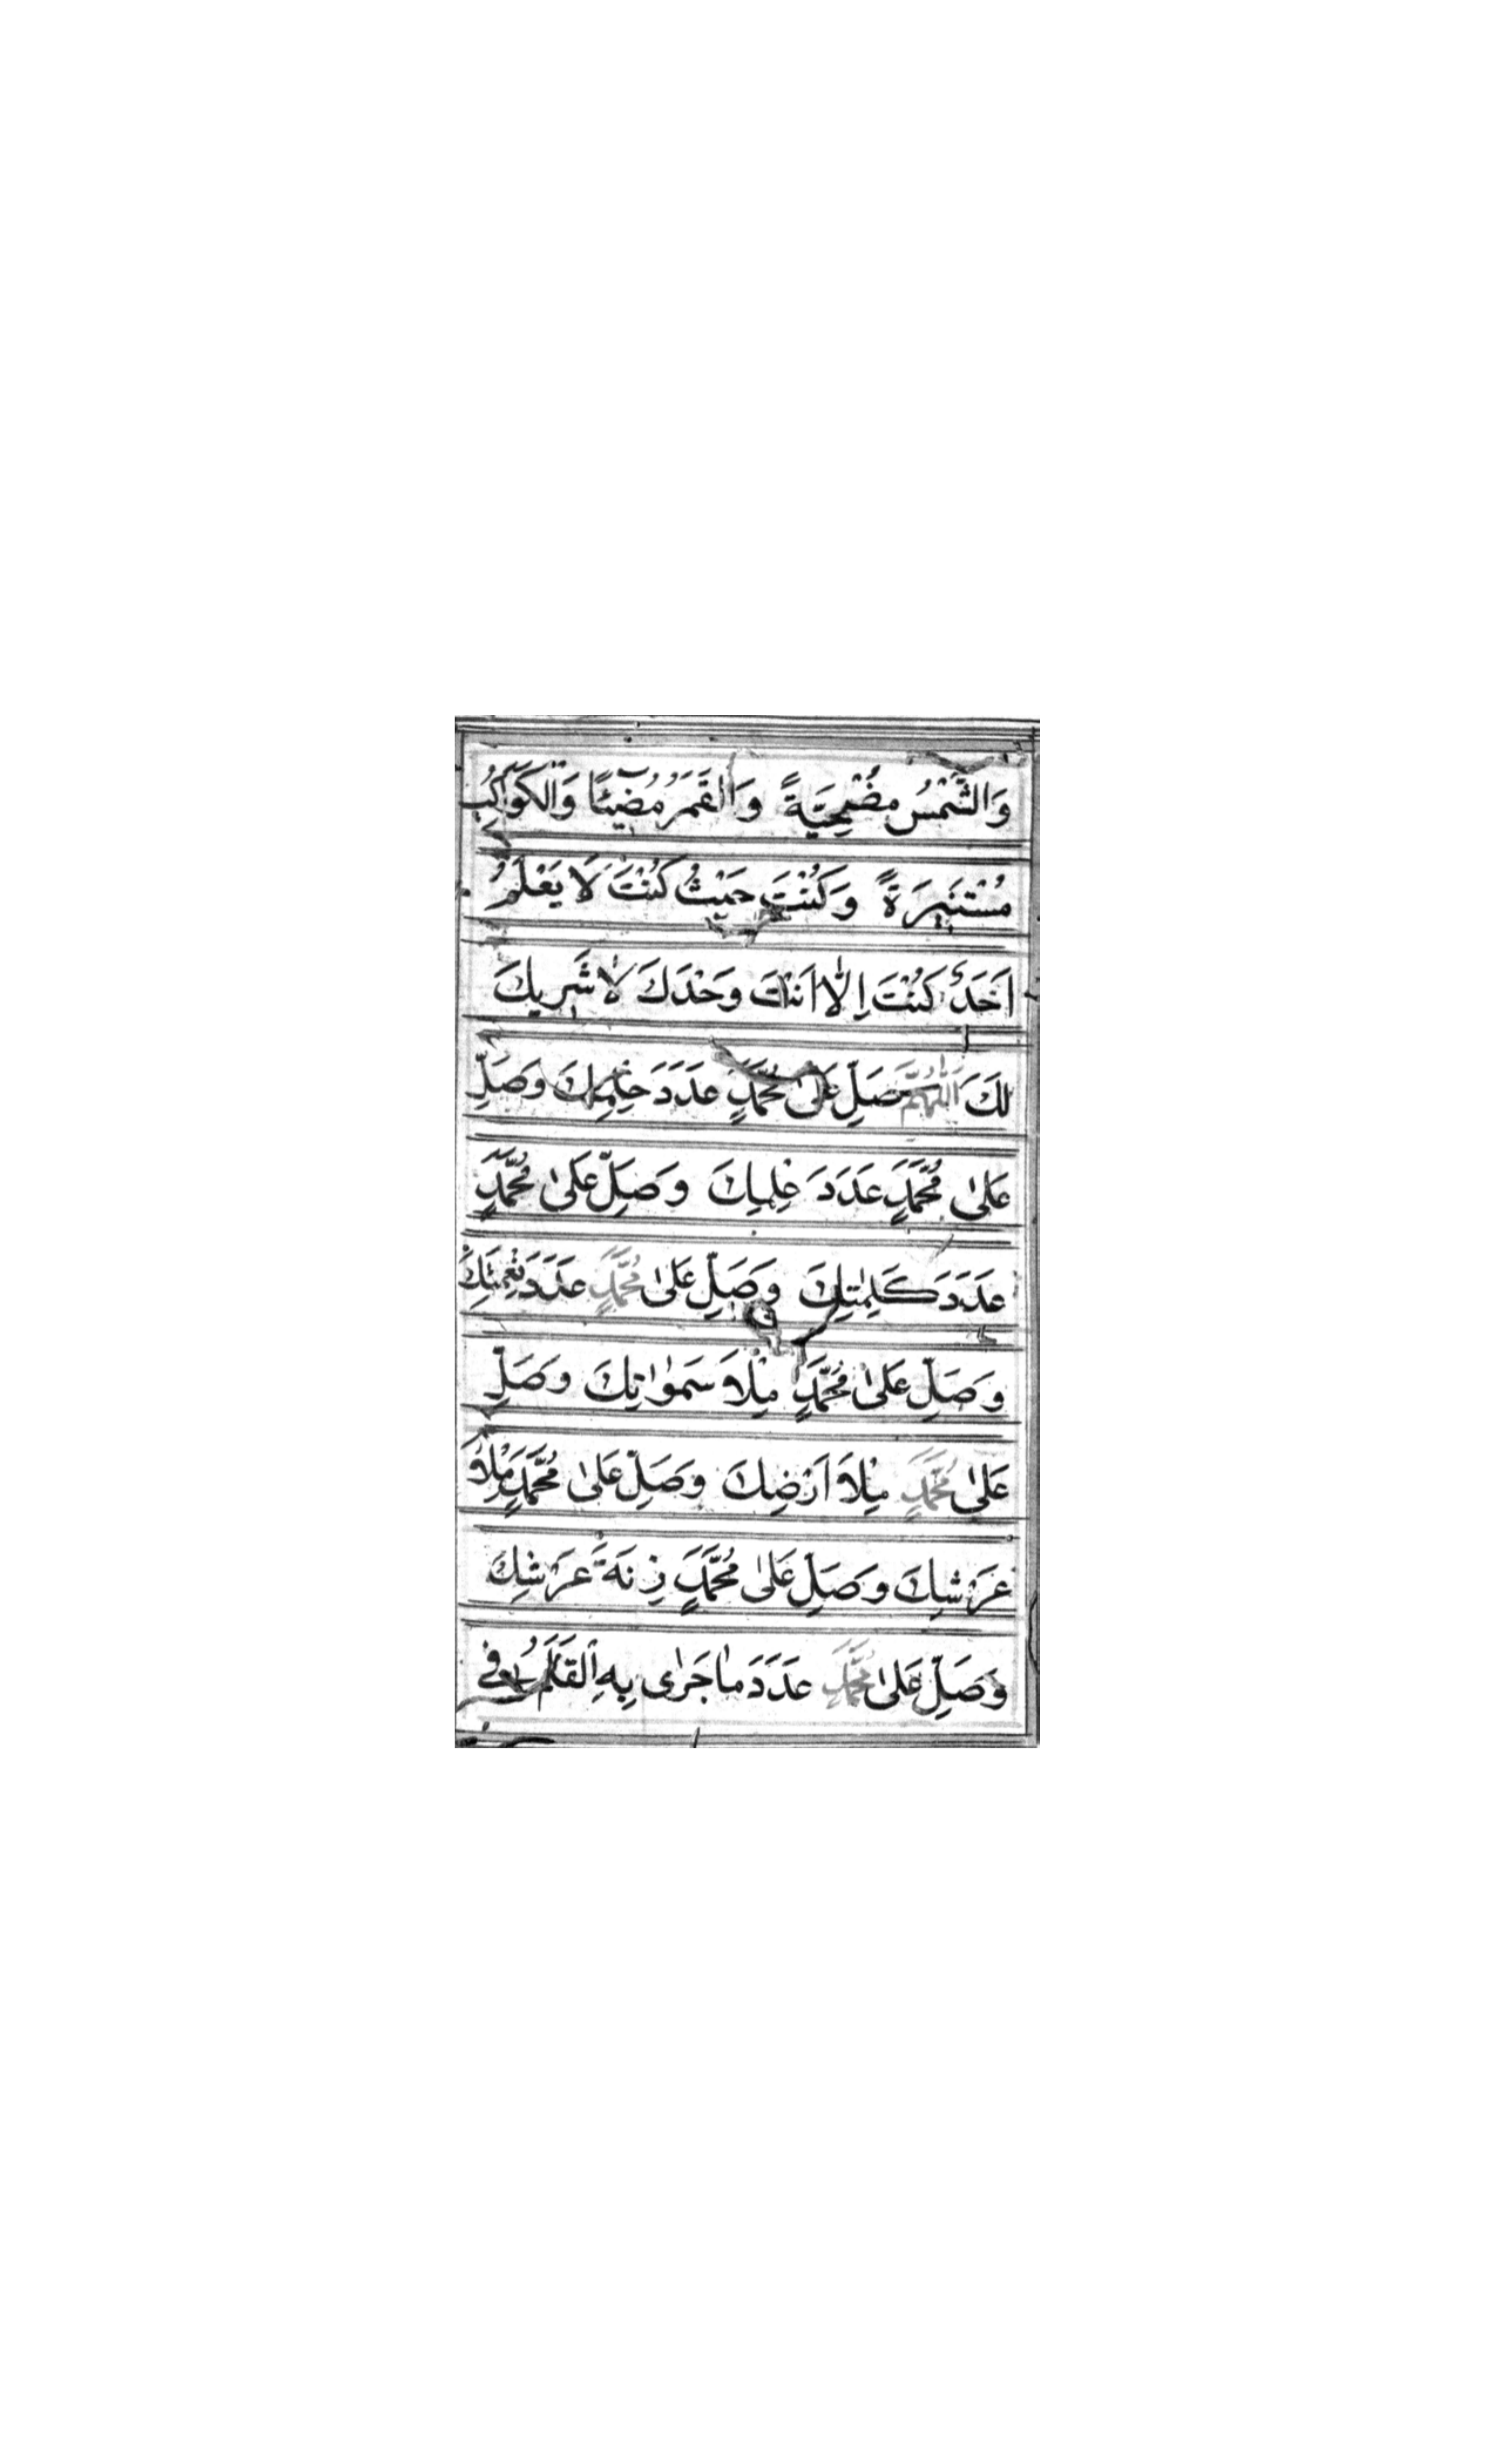 وَالشَّمْسُ مُضْحِيَّةً وَالْقَمَرُ مُضِيْئًا وَالْكَوَاكِبُ
مُسْتَنِيرَةً وَكُنْتَ حَيْثُ كُنْتَ لَا يَعْلَمُ
اَحَدٌ كُنْتَ اِلَّا اَنْتَ وَحْدَكَ لَا شَرِيكَ
لَكَ اَللّٰهُمَّ صَلِّ عَلٰى مُحَمَّدٍ عَدَدَ حِلْمِكَ وَصَلِّ
عَلٰى مُحَمَّدٍ عَدَدَ عِلْمِكَ وَصَلِّ عَلٰى مُحَمَّدٍ
عَدَدَ كَلِمٰتِكَ وَصَلِّ عَلٰى مُحَمَّدٍ عَدَدَ نِعْمَتِكَ
وَصَلِّ عَلٰى مُحَمَّدٍ مِلْاَ سَمٰوَاتِكَ وَصَلِّ
عَلٰى مُحَمَّدٍ مِلْاَ اَرْضِكَ وَصَلِّ عَلٰى مُحَمَّدٍ مِلْاَ
عَرْشِكَ وَصَلِّ عَلٰى مُحَمَّدٍ زِنَةَ عَرْشِكَ
وَصَلِّ عَلٰى مُحَمَّدٍ عَدَدَ مَا جَرٰى بِهِ الْقَلَمُ فِى